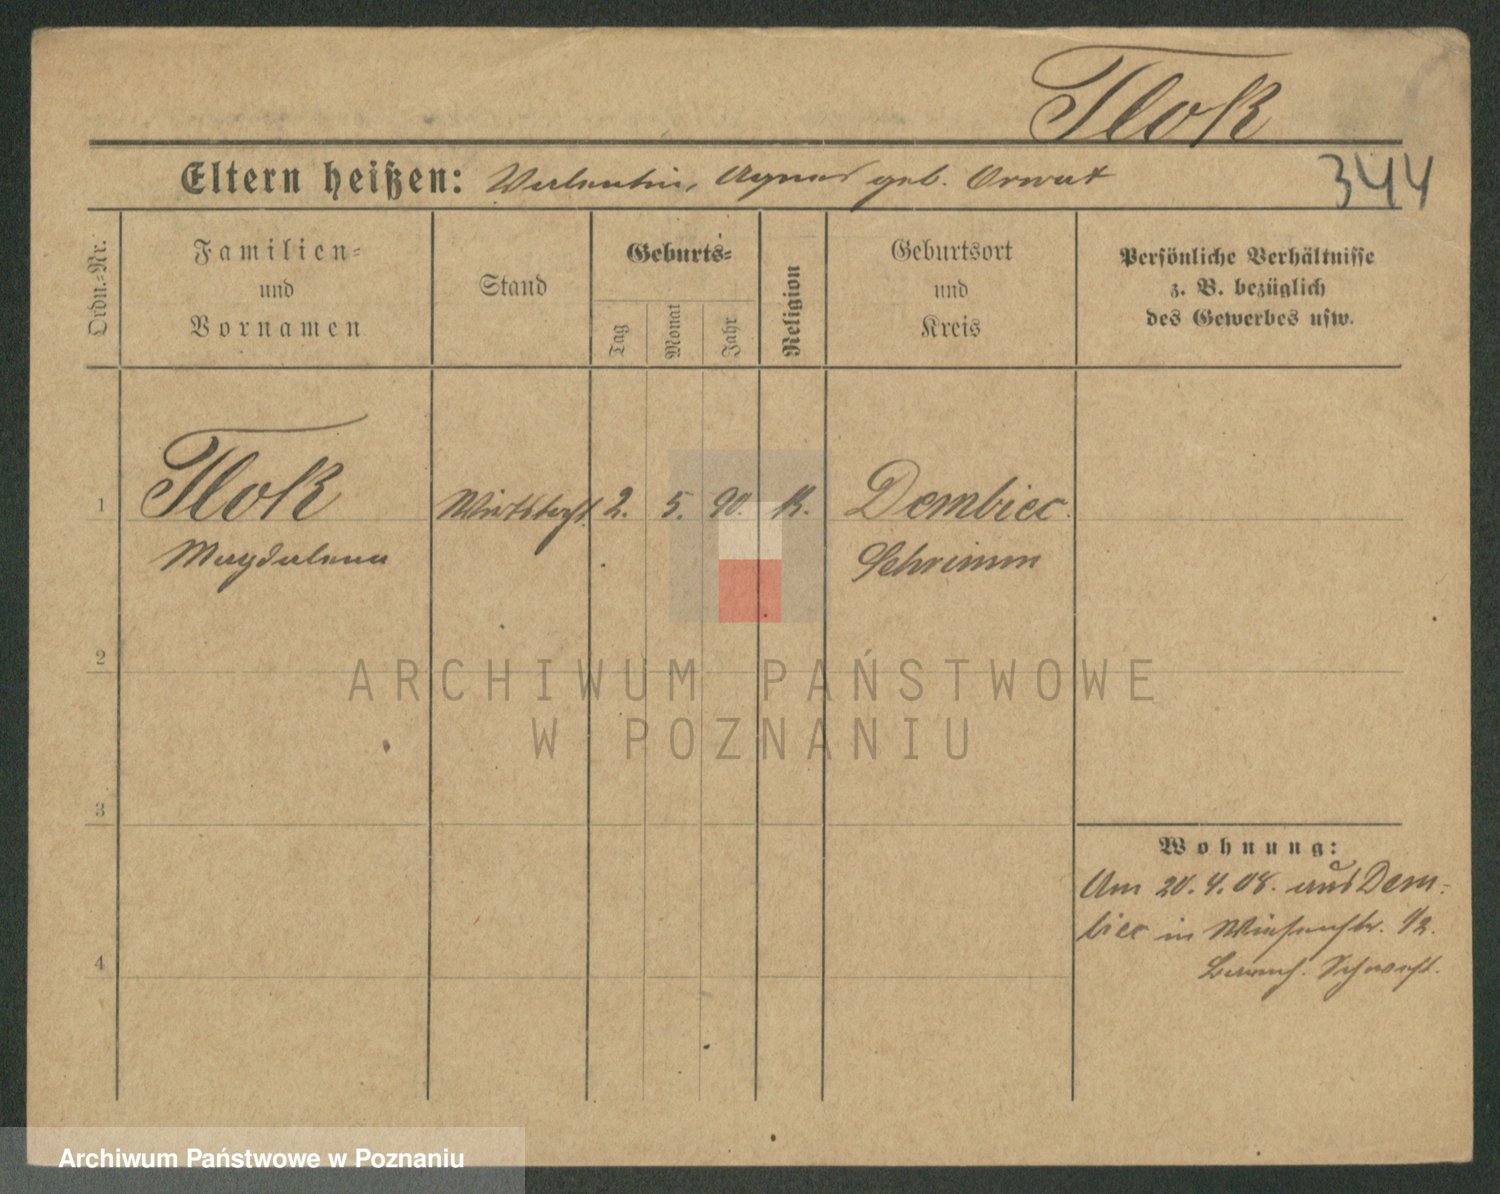 Tlok
344
Eltern heißen: Valentin, Agnes geb. Orwat
Ordn.-Nr.
Familien-
und
Vornamen
Stand
Geburts-
Tag
Monat
Jahr
Religion
Geburtsort
und
Kreis
Persönliche Verhältnisse
z. B. bezüglich
des Gewerbes usw.
1 Tlok 2. 5. 90. K. Dembiec.
Magdalena Schrimm
2
ARCHIWUM PAŃSTWOWE
W POZNANIU
3
Wohnung:
Am 20.4.08. aus Dem-
biec in 1/2.
4
Archiwum Państwowe w Poznaniu